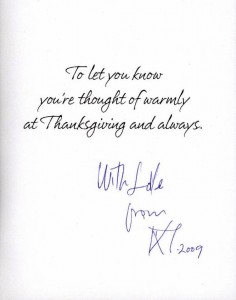 To let you know
you're thought of warmly
at Thanksgiving and always.
With Love
from
2009